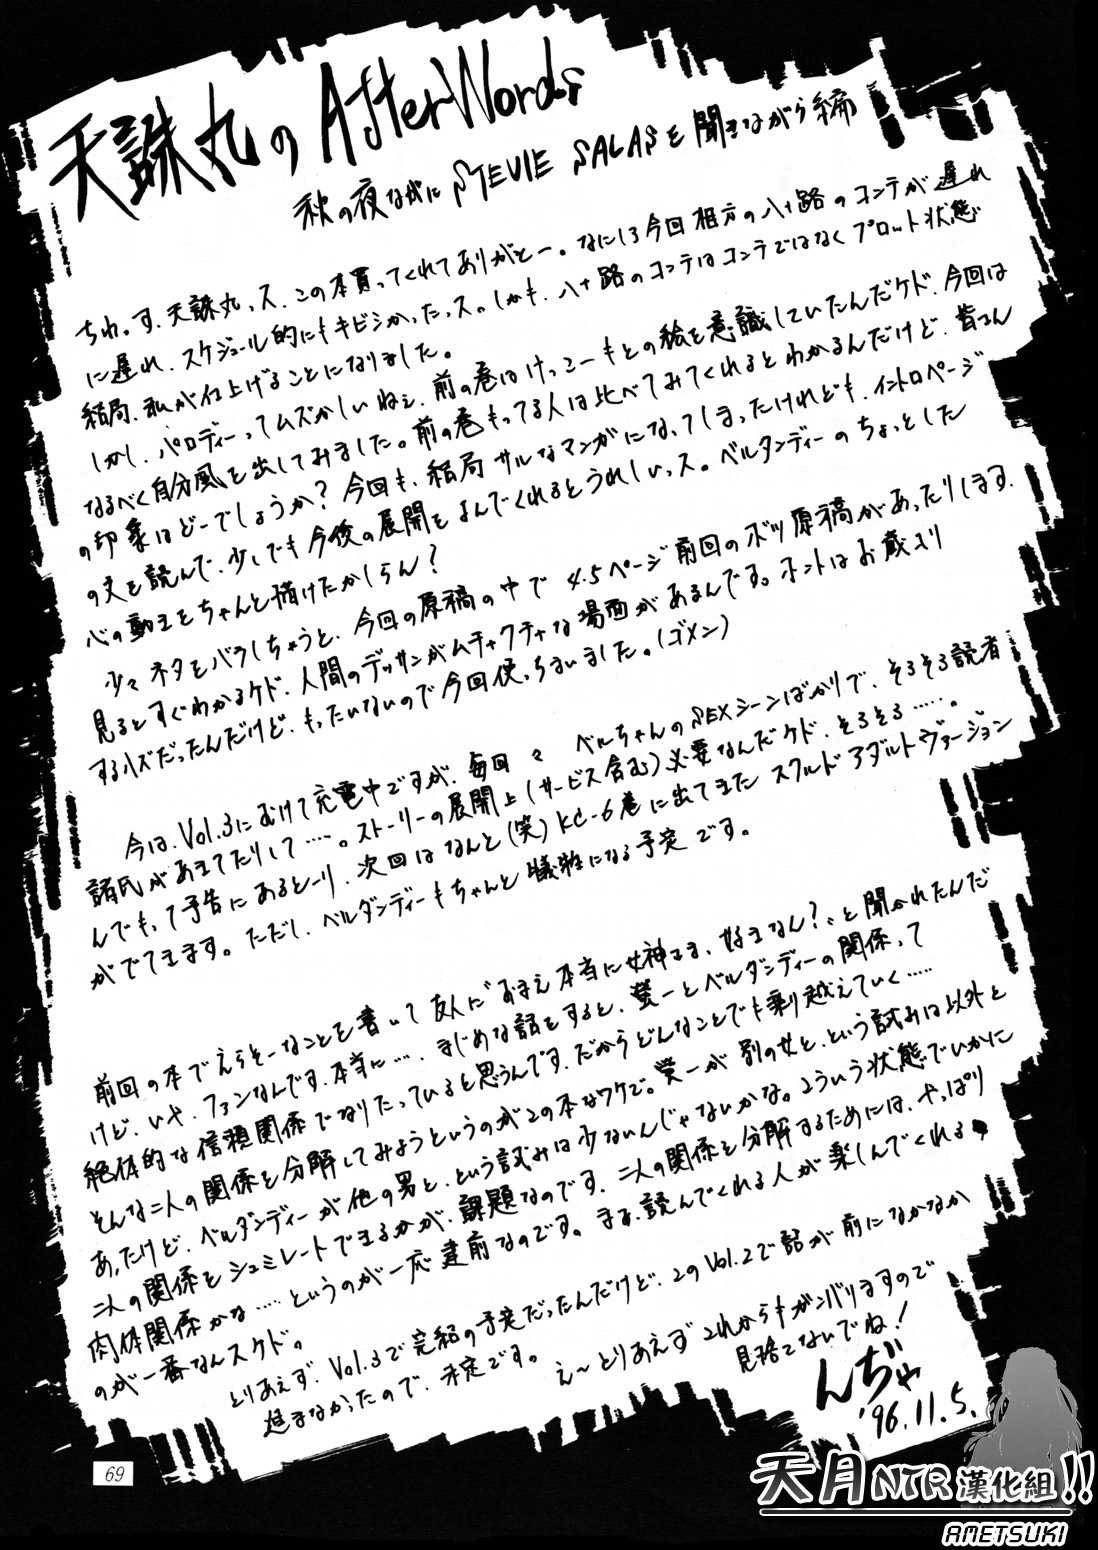 天誅丸の AfterWords
秋の夜ながに STEVIE SALASを聞きながら編
ちわっす、天誅丸っス、この本買ってくれてありがとー。なにしろ今回相方の八十路のコンテが遅れ
に遅れ、スケジュール的にもキビシかったっス。しかも、八十路のコンテはコンテではなくプロット状態
結局、私が仕上げることになりました。
しかし、パロディーってムズかしいねぇ、前の巻はけっこーもとの絵を意識していたんだケド、今回は
なるべく自分風を出してみました。前の巻もってる人は比べてみてくれるとわかるんだけど、皆さん
の印象はどーでしょうか？今回も、結局サルなマンガになってしまったけれども、イントロページ
の文を読んで、少しでも今後の展開をよんでくれるとうれしいっス。ベルダンディーのちょっとした
心の動きをちゃんと描けたかしらん？
少々ネタをバラしちゃうと、今回の原稿の中で4.5ページ前回のボツ原稿があったりします。
見るとすぐわかるケド、人間のデッサンがムチャクチャな場面があるんです。ホントはお蔵入り
するハズだったんだけど、もったいないので今回使っちまいました。(ゴメン)
今は、Vol.3にむけて充電中ですが、毎回々 ベルちゃんのSEXシーンばかりで、そろそろ読者
諸氏があきてたりして……。ストーリーの展開上(サービス含む)必要なんだケド、そろそろ……。
んでもって予告にあるとーり、次回はなんと(笑)KC-6巻に出てきた スクルド アダルトヴァージョン
がでてきます。ただし、ベルダンディーもちゃんと犠牲になる予定です。
前回の本でえらそーなことを書いて友人に"おまえ本当に女神さま、好きなん？"と聞かれたんだ
けど、いや、ファンなんです、本当に…。まじめな話をすると、螢一とベルダンディーの関係って
絶体的な信頼関係でなりたっていると思うんです、だからどんなことでも乗り越えていく……
そんな二人の関係を分解してみようというのがこの本なワケで。螢一が別の女と、という試みは以外と
あったけど、ベルダンディーが他の男と、という試みは少ないんじゃないかな。こういう状態でいかに
二人の関係をシュミレートできるかが、課題なのです、二人の関係を分解するためには、やっぱり
肉体関係かな……というのが一応建前なのです。まぁ、読んでくれる人が楽しんでくれる
のが一番なんスケド。
とりあえず、Vol.3で完結の予定だったんだけど、このVol.2で話が前になかなか
進まなかったので、未定です。
え〜とりあえずこれからもガンバリますので
見捨てないでね！
んぢゃ
'96.11.5.
69
天月NTR漢化組!!
AMETSUKI